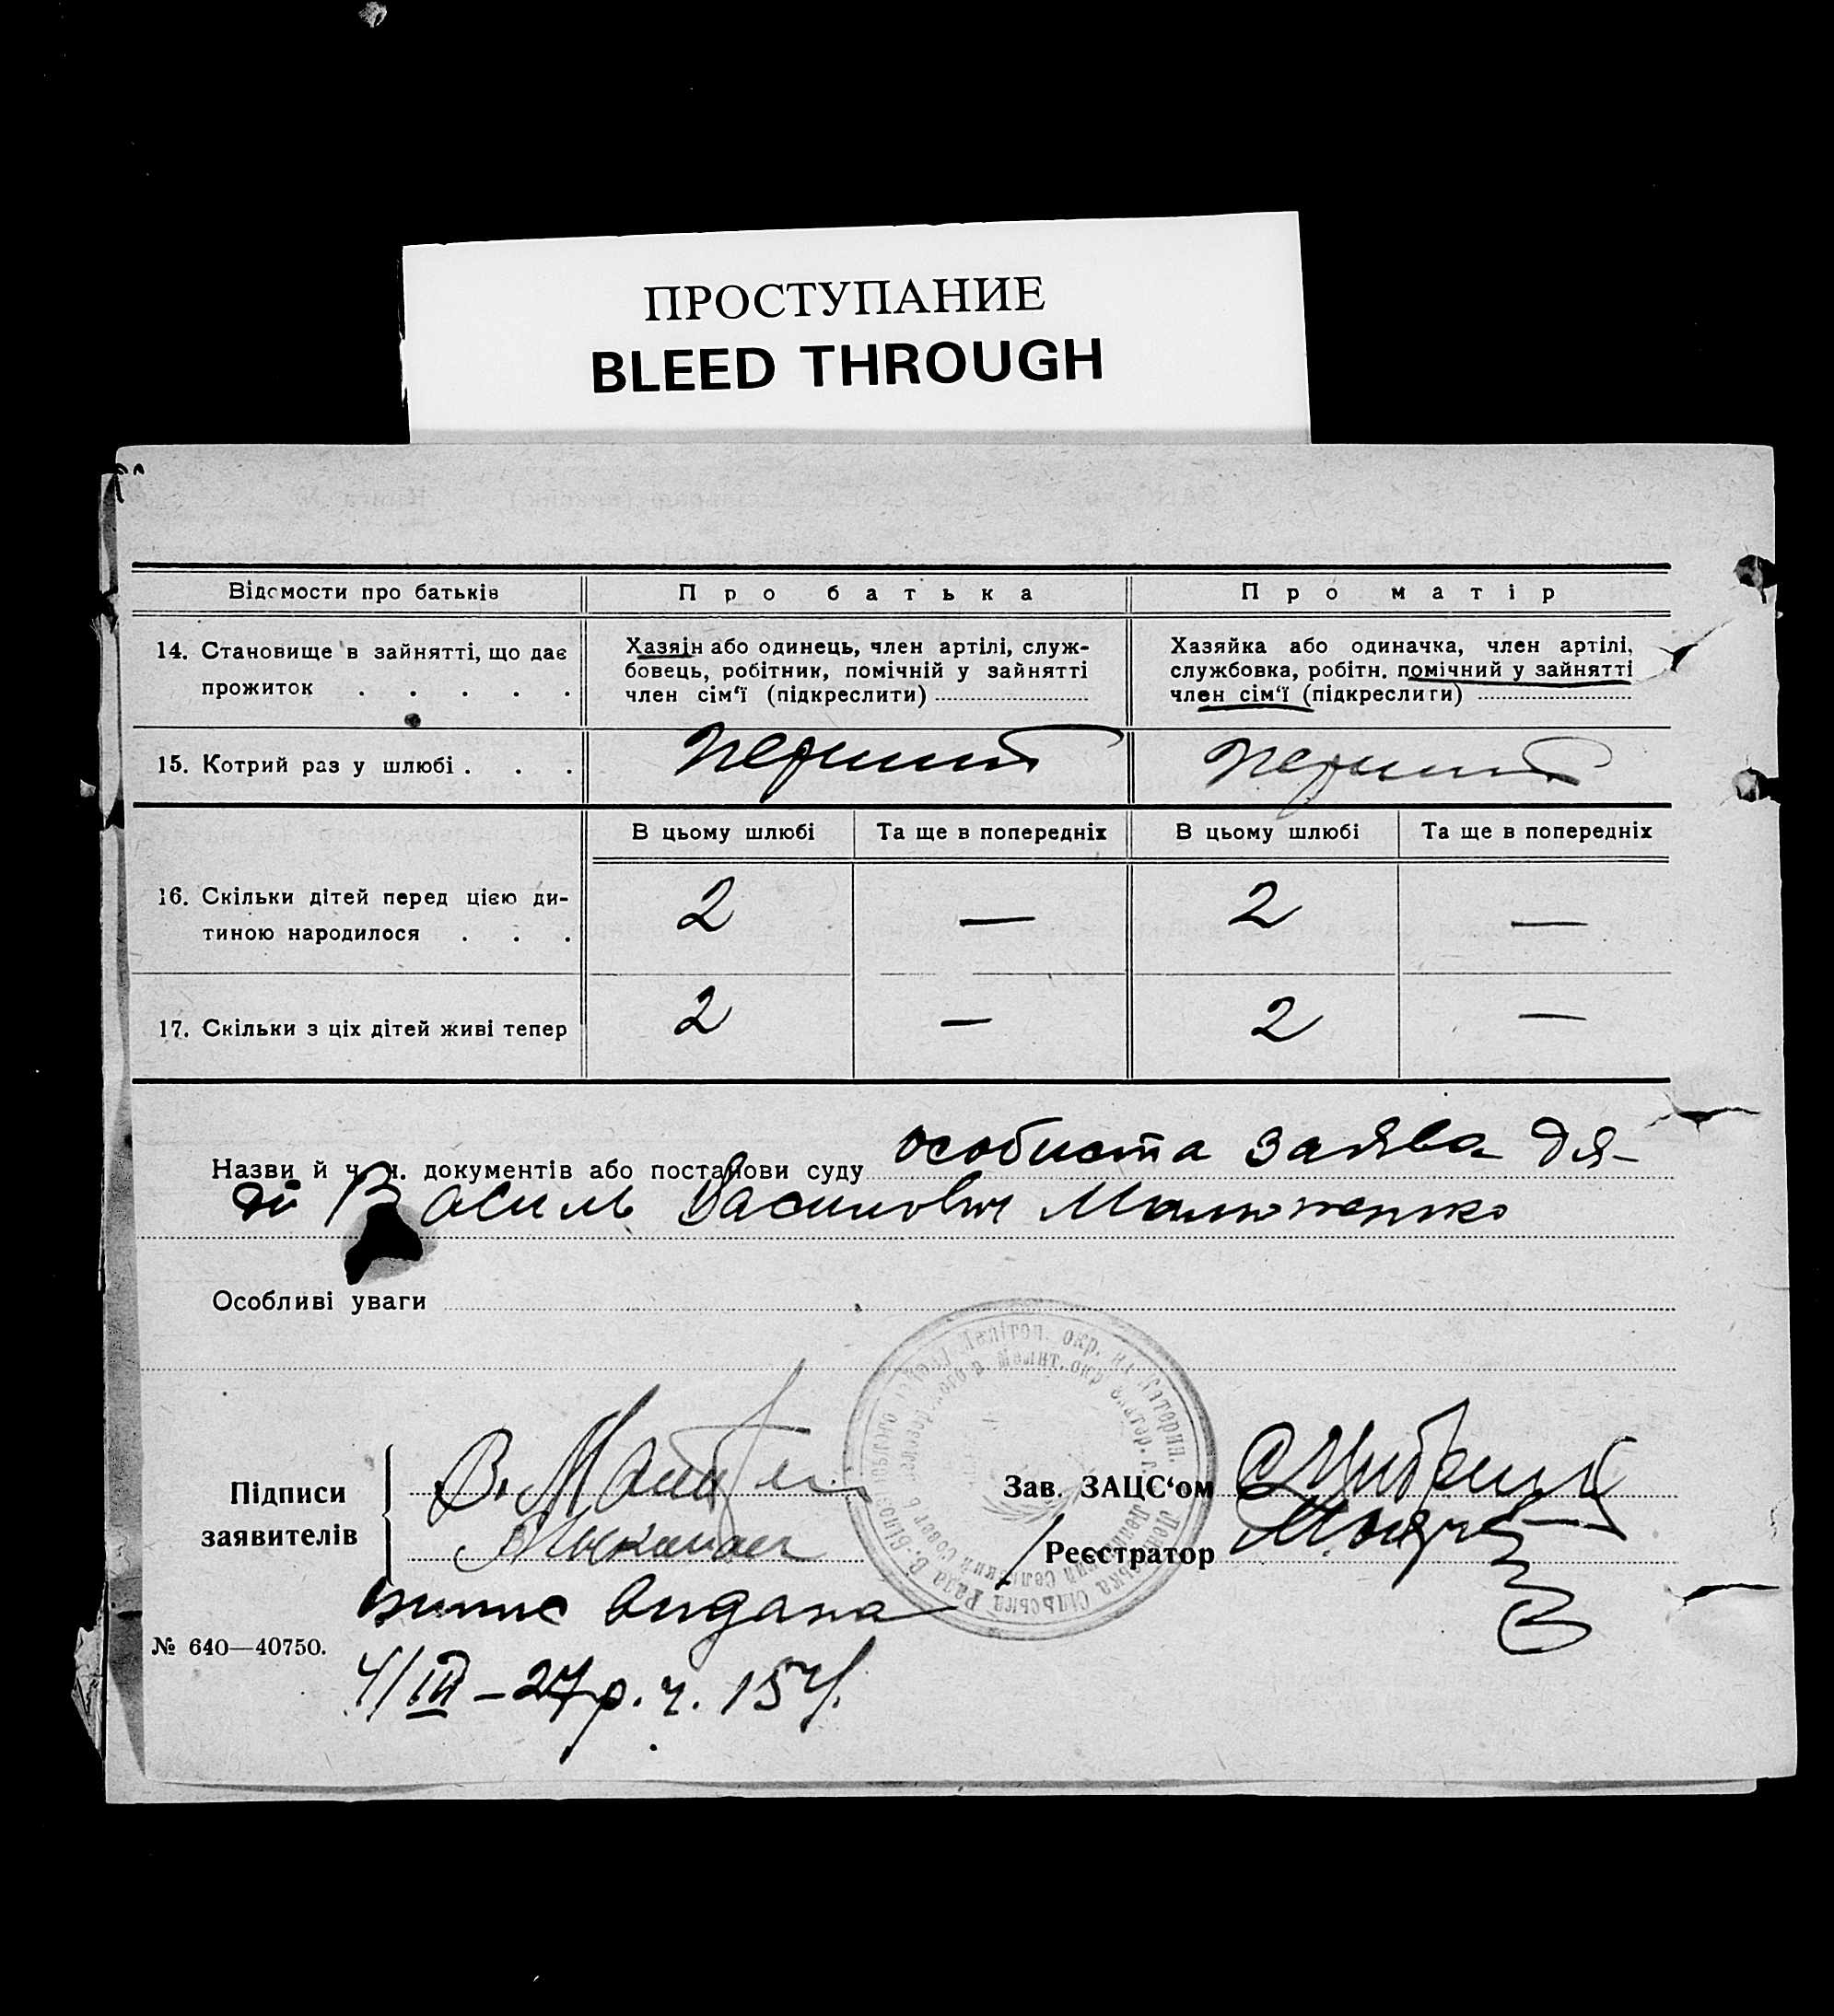 ПРОСТУПАНИЕ
BLEED THROUGH
Відомости про батьків
Про батька
Про матір
14. Становище в зайнятті, що дає
прожиток . . . . .
Хазяїн або одинець, член артілі, служ-
бовець, робітник, помічній у зайнятті
член сім‘ї (підкреслити)
Хазяйка або одиначка, член артілі,
службовка, робітн. помічний у зайнятті
член сім‘ї (підкреслити)
15. Котрий раз у шлюбі . . .
перший
перший
В цьому шлюбі
Та ще в попередніх
В цьому шлюбі
Та ще в попередніх
16. Скільки дітей перед цією ди-
тиною народилося . . .
2
—
2
—
17. Скільки з ціх дітей живі тепер
2
—
2
—
Назви й ч. ч. документів або постанови суду особиста заява дя-
ді Василь Василович
Особливі уваги
Підписи
заявителів
Зав. ЗАЦС‘ом
Реєстратор
видана
№ 640—40750.
4/III – 27 р. ч. 154.